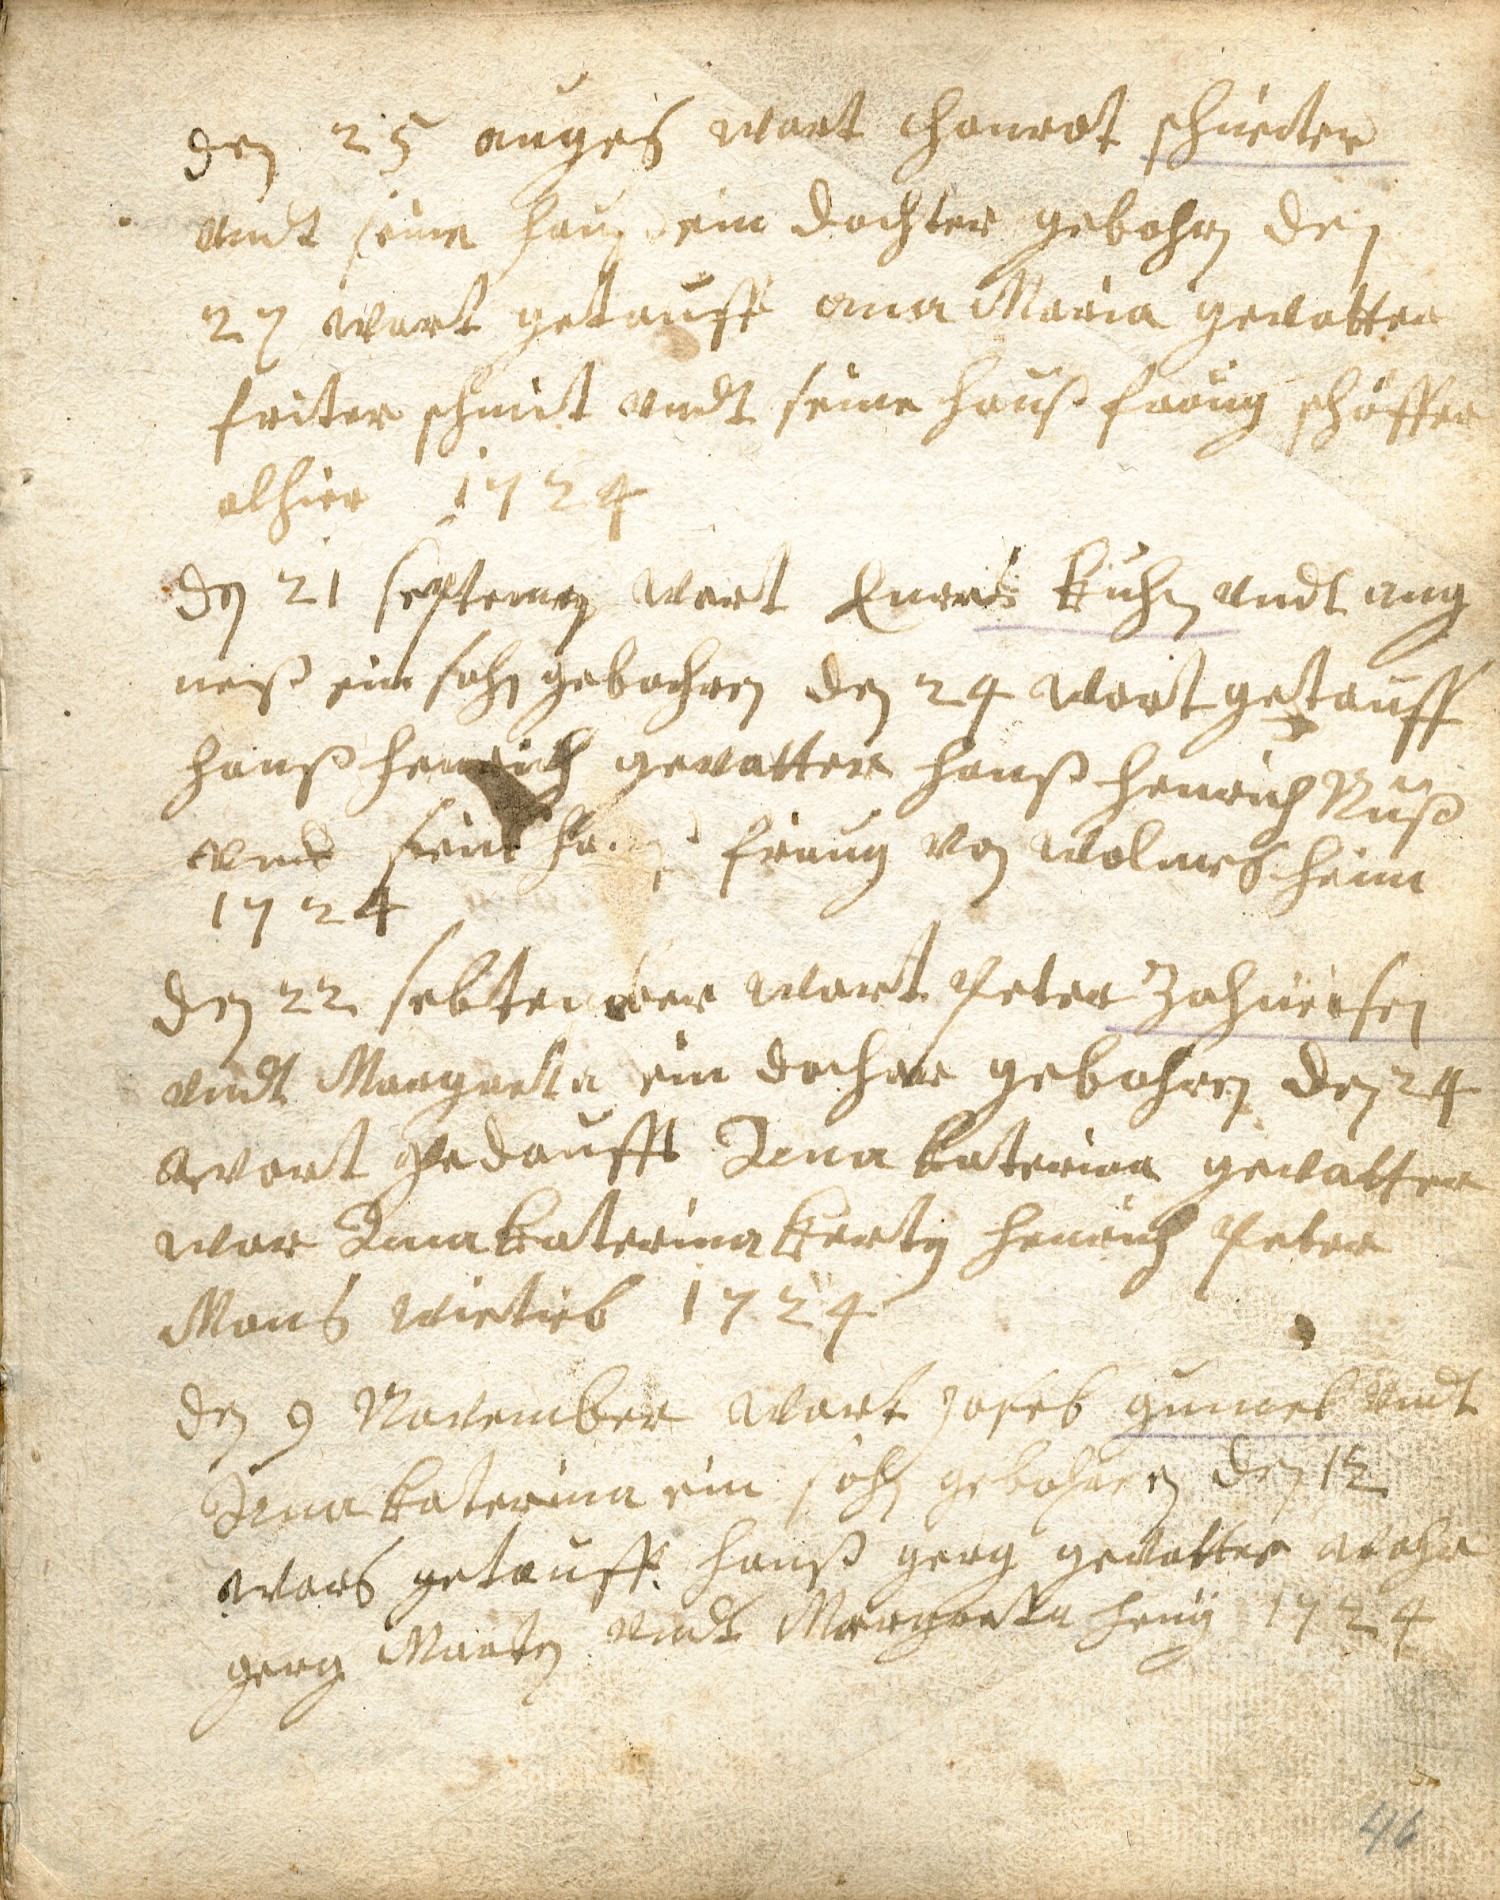 den 25 auges wart Chonrat schneiter
vndt seine hauß ein dochter gebohrn den
27 wart getaufft ana Maria gevatter
friter schmit vndt seine hauß fraug schäffer
alhier 1724
den 21 septemer wart kühn vndt ang
neß ein sohn gebohren den 24 wart getaufft
hanß henrich gevatter hanß henrich Nuß
vnd sein fraug von wolmesheim
1724
den 22 sebtember wart Peter
vndt Margreta ein dochter gebohren den 24
wart gedaufft Anna katerina gevatter
war Anna katerina henrich Peter
Mans 1724
den 9 November wart Joseb gumel vndt
Anna katerina ein sohn gebohren den 12
wars getaufft hanß gerg gevatter wahr
gerg Marten vndt Margreta 1724
46